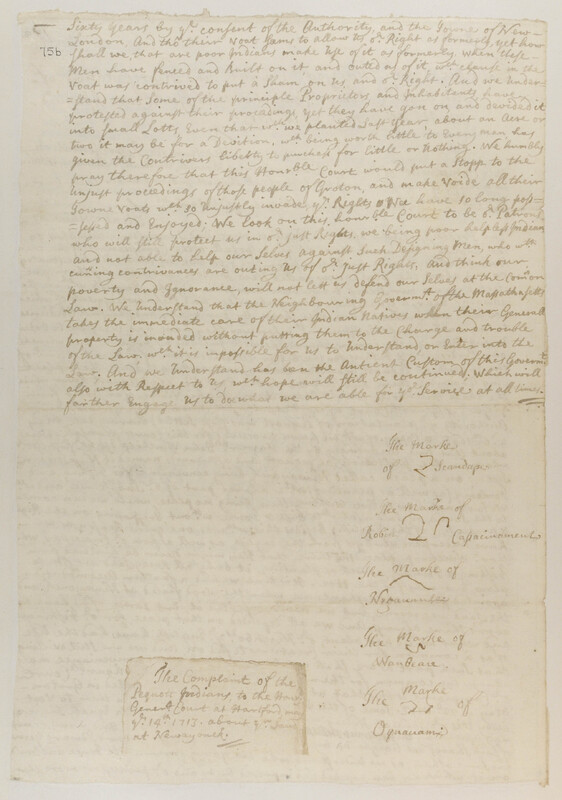 75b
Sixty years by yr. consent of the Authority, and the Towne of New-
London. And tho their Voat seams to allow us or. Right as formerly, yet how
shall we that are poor Indians make use of it as formerly, when these
Men have fenced and Built on it and outed us of it, wch. clause in the
Voat was contrived to put a Sham on us and or. Right. And we under-
=stand that Some of the principle Proprietors and Inhabitants have
protested against their procedings, yet they have gon on and devided it
into Small Lotts Even than wt. we planted last year about an Acre or
two it may be for a Devition, wch. being worth little to Every man has
given the Contrivers liberty to purchase for little or Nothing. We humbly
pray therefore that this Honorble Court would put a Stopp to the
unjust proceedings of those people of Groton, and make Voide all their
Towne Voats wch. so unjustly invade yr. Rights We have so long pos-
=sessed and Enjoyed. We look on this honorble Court to be or. Patrons
who will still protect us in or. just Rights, we being poor helpless Indians
and not able to help our Selves against Such Designing Men, who wth.
cuning contrivances are outing us of or. just Rights, and think our
poverty and Ignorance, will not lett us defend our Selves at the Comon
Law. We understand that the Neighbouring Governmt. of the Massathusetts
takes the immediate care of their Indian Natives when their Generall
property is invaded without putting them to the Charge and trouble
of the Law, wch. it is impossible for us to Understand or Enter into the
. And we Understand has ben the Antient Custom of this Governmt.
also with Respect to Us wch. we hope will Still be continued, Which will
farther Engage us to doe what we are able for yr. Service at all times.
The Marke
of Scaudup
The Marke of
Robin Cassacinament
The Marke of
The Marke of
The Marke
of
The Complaint of the
Pequott Indians to the Honr.
Generll. Court at Hartford,
yr. 14th. 1713. about yr. Land
at Nawayonck.